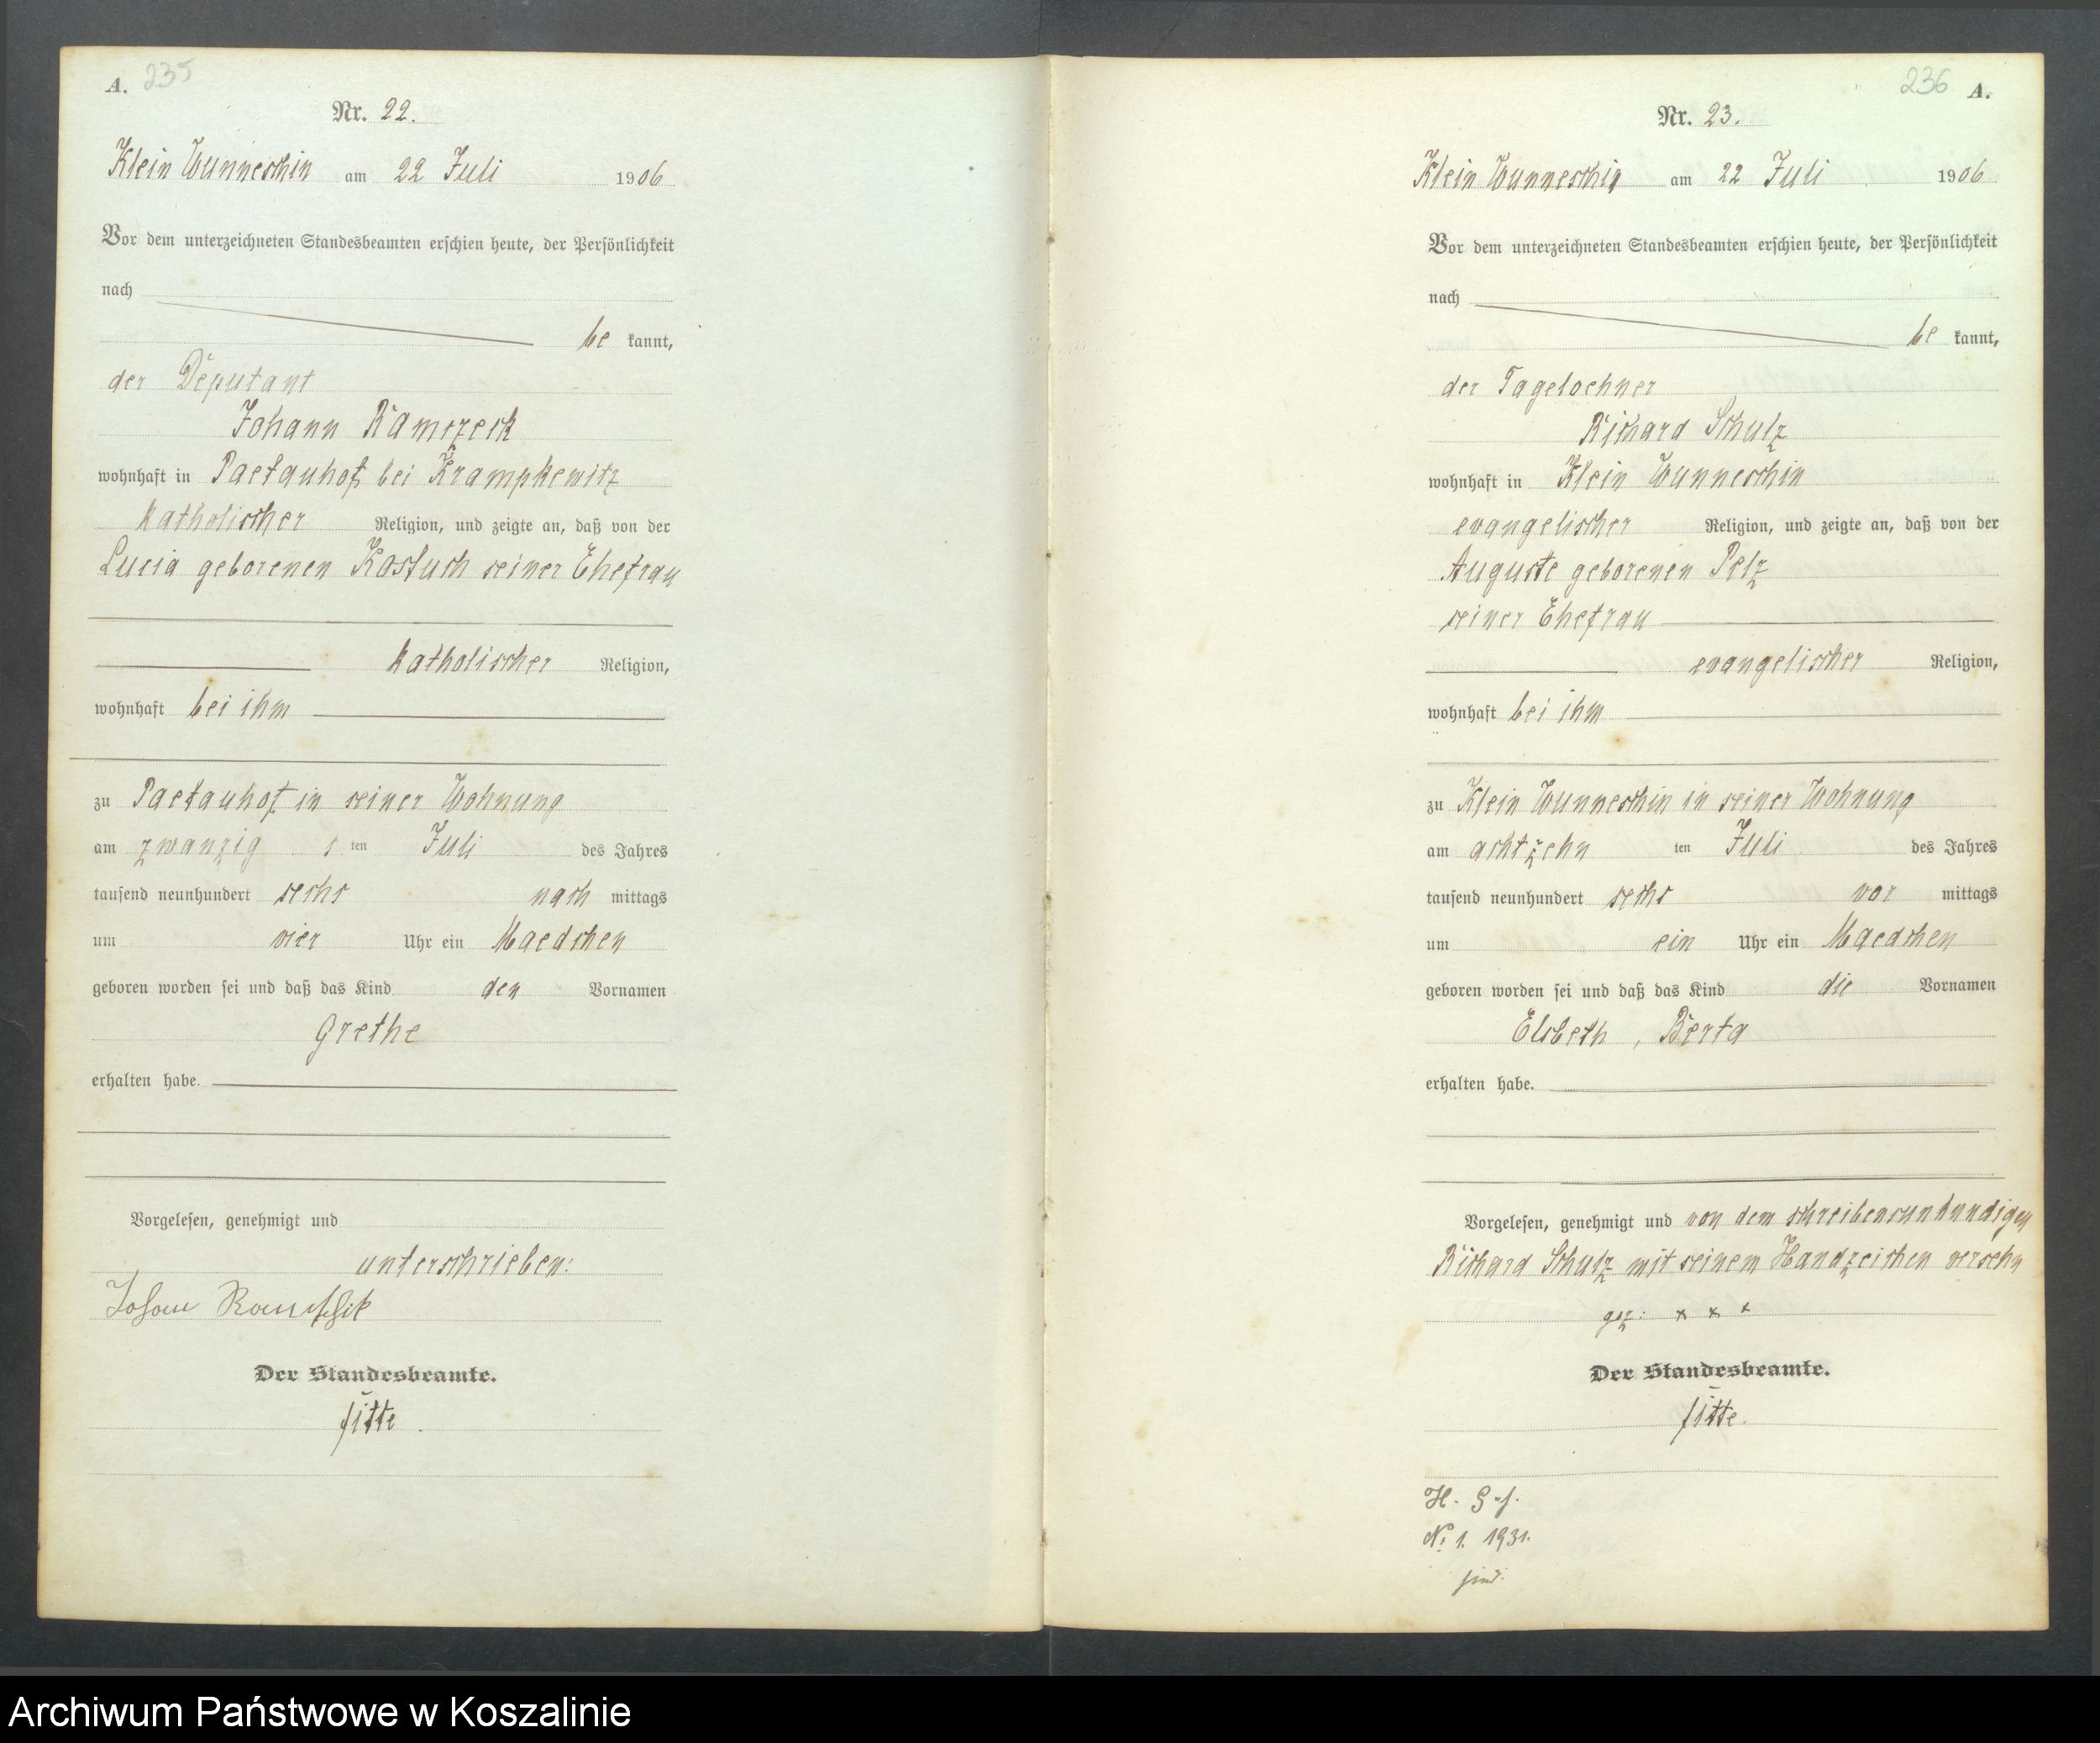 A. 235
Nr. 22.
Klein Wunneschin am 22 Juli 1906
Vor dem unterzeichneten Standesbeamten erschien heute, der Persönlichkeit
nach
be kannt,
der Deputant
Johann Ramczeck
wohnhaft in Paetauhof bei Krampkewitz
katholischer Religion, und zeigte an, daß von der
Lucia geborenen Kostuch seiner Ehefrau
katholischer Religion,
wohnhaft bei ihm
zu Paetauhof in seiner Wohnung
am zwanzig s ten Juli des Jahres
tausend neunhundert sechs nach mittags
um vier Uhr ein Maedchen
geboren worden sei und daß das Kind den Vornamen
Grethe
erhalten habe.
Vorgelesen, genehmigt und
unterschrieben:
Johan
Der Standesbeamte.
Fitte.
236 A.
Nr. 23.
Klein Wunneschin am 22 Juli 1906
Vor dem unterzeichneten Standesbeamten erschien heute, der Persönlichkeit
nach
be kannt,
der Tageloehner
Richard Schulz
wohnhaft in Klein Wunneschin
evangelischer Religion, und zeigte an, daß von der
Auguste geborenen Pelz
seiner Ehefrau
evangelischer Religion,
wohnhaft bei ihm
zu Klein Wunneschin in seiner Wohnung
am achtzehn ten Juli des Jahres
tausend neunhundert sechs vor mittags
um ein Uhr ein Maedchen
geboren worden sei und daß das Kind die Vornamen
Elsbeth, Berta
erhalten habe.
Vorgelesen, genehmigt und von dem schreibensunkundigen
Richard Schulz mit seinem Handzeichen versehn
gez: x x x
Der Standesbeamte.
Fitte.
H.
No 1. 1931.
Archiwum Państwowe w Koszalinie